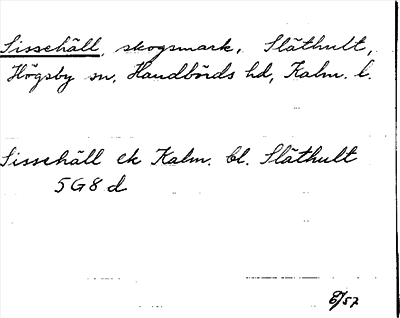 Sissehäll, skogsmark, Släthult,
Högsby sn, Handbörds hd, Kalm. l.
Sissehäll ek Kalm. bl. Släthult
5G8d
/57